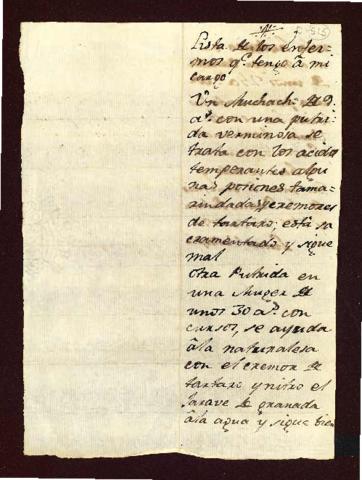 Lista de los enfer-
mos q.e tengo â mi
cargo
Un Muchach. de 9.
a.s con una putri-
da verminosa se
trata con los acidos
temperantes algu
nas posiones tama-
rindadas y cremores
de tartaro; està sa
cramentado y sigue
mal
otra Putrida en
una Muger de
unos 30 a.s con
cursos, se ayuda
âla naturalesa
con el cremor de
tartaro y nitro el
Jarave de granada
âla agua y sigue bien